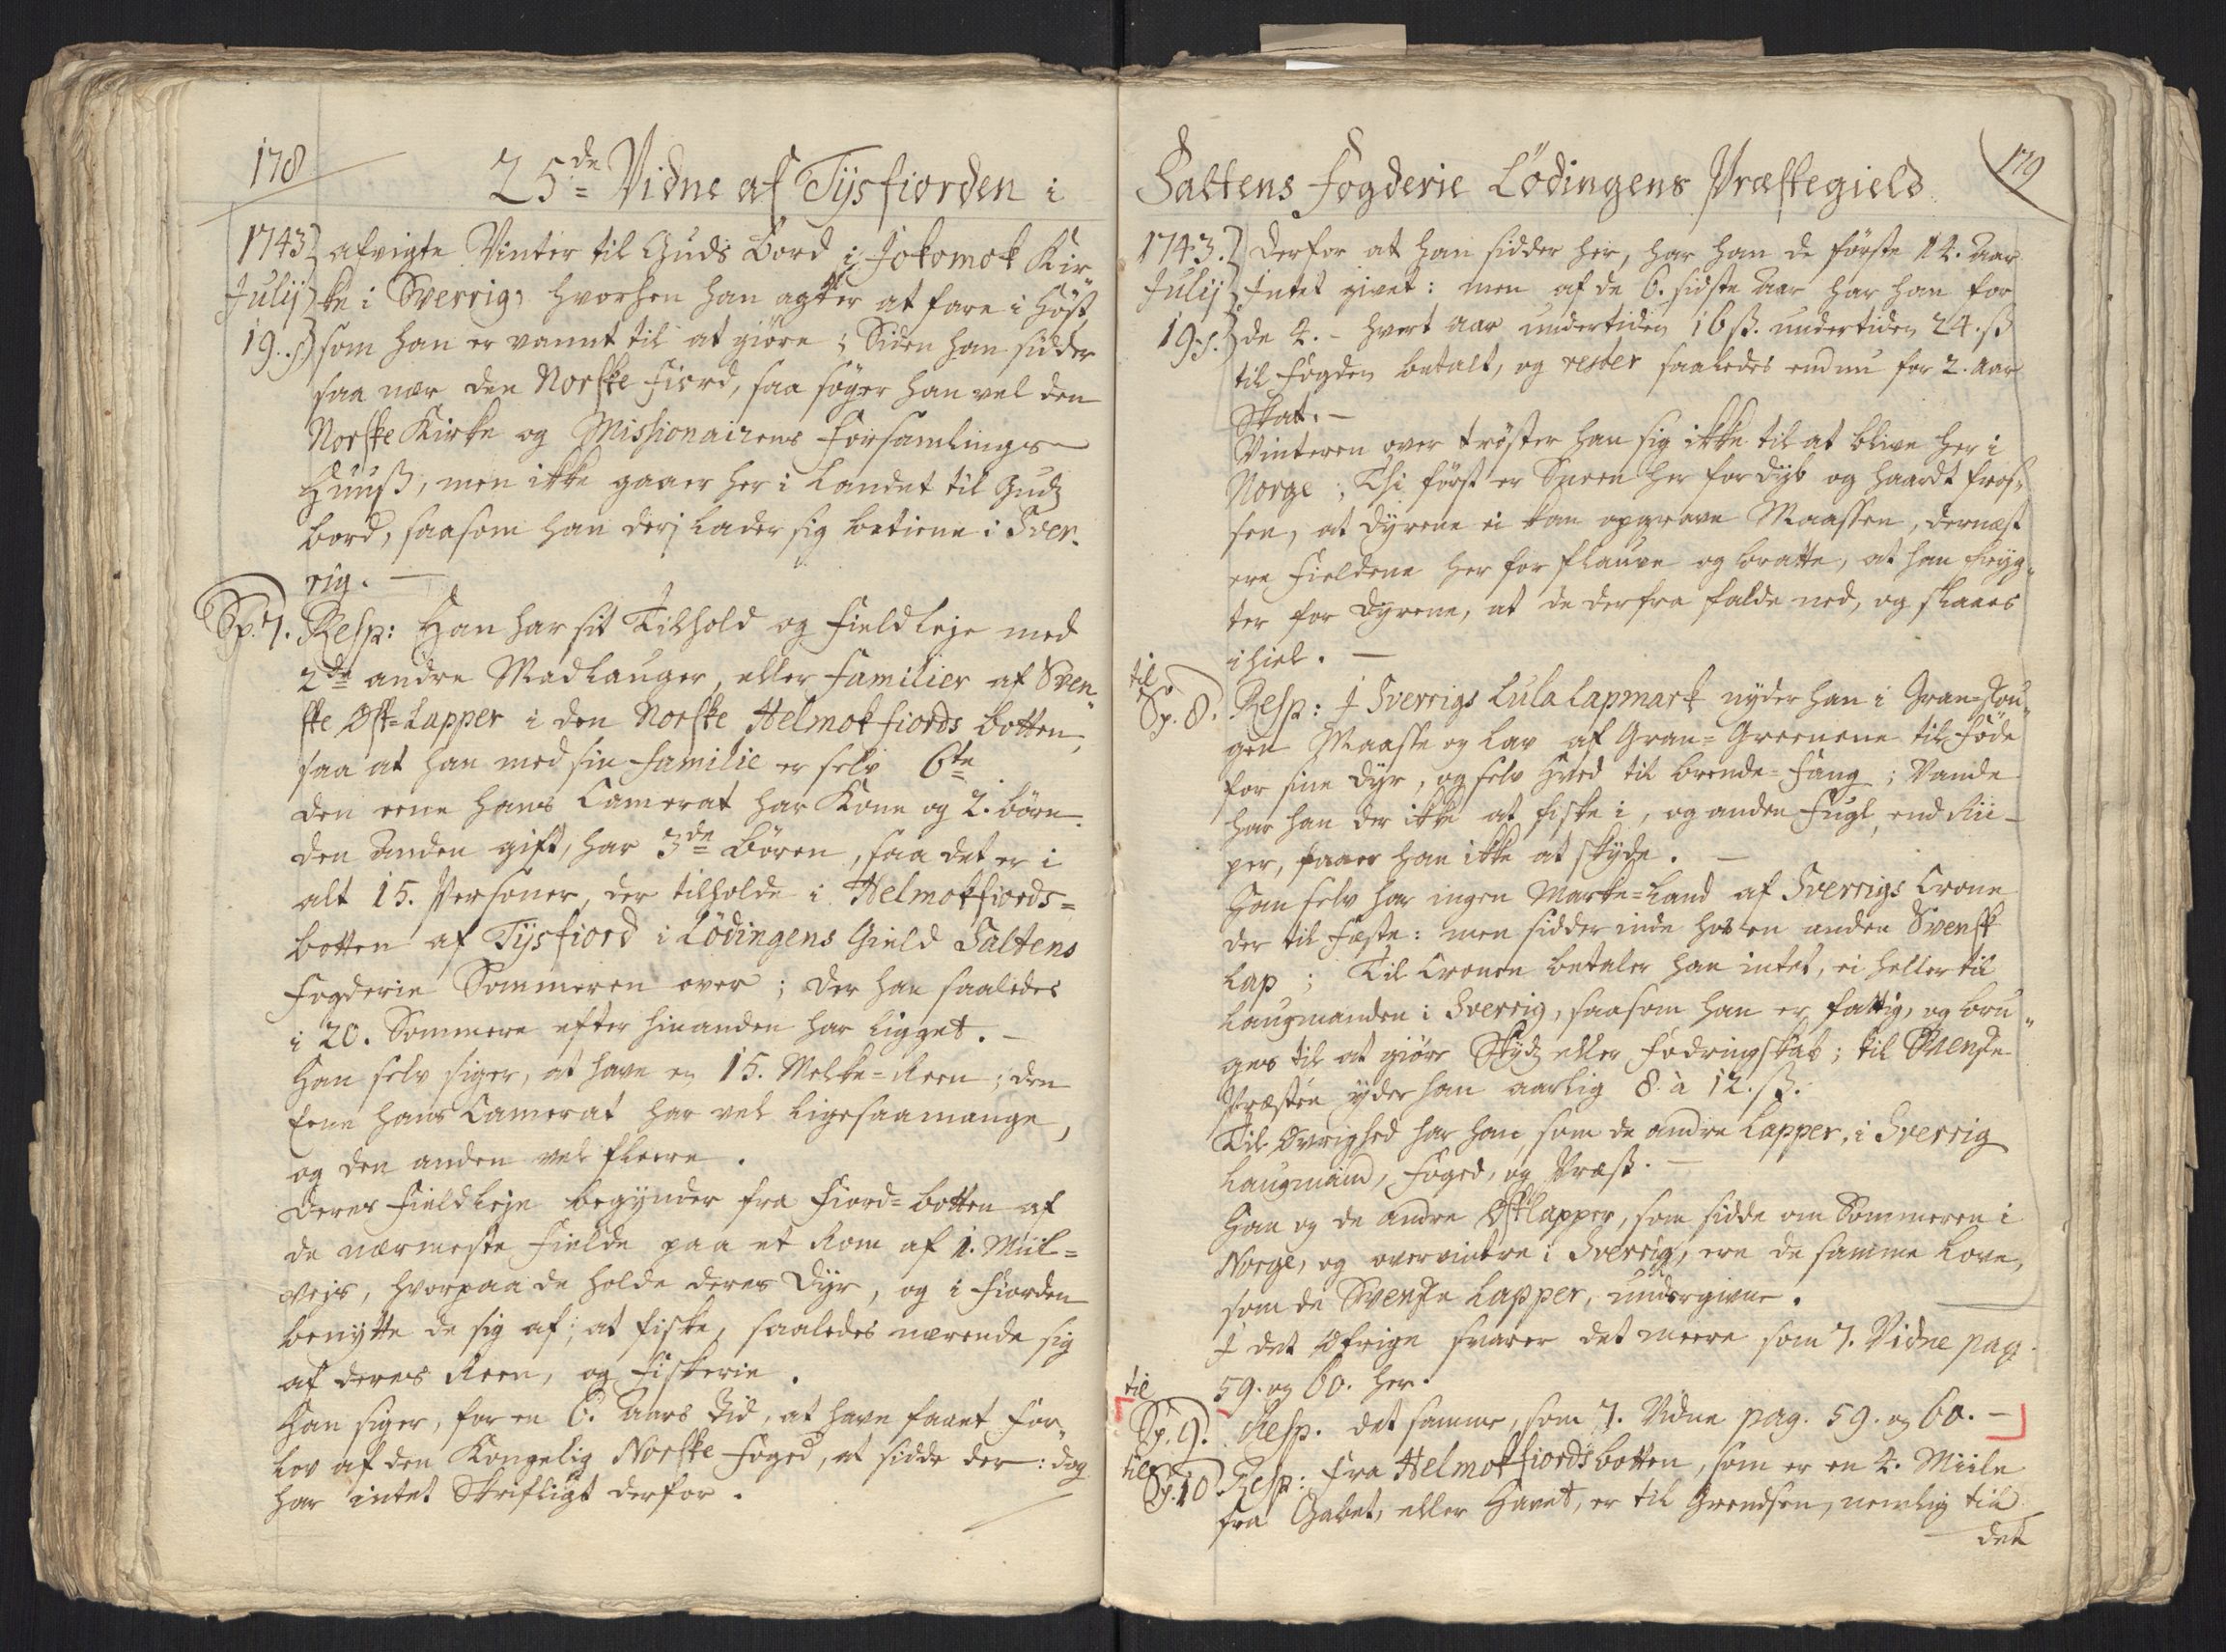 178
25de Vidne af Tysfiorden i
1743 afvigte Vinter til Guds Bord i Jokomok Kir
Julij ke i Sverrig, hvorhen han agter at fare i Höst,
19.s) som han er vannt til at giöre; Siden han sidder
saa nær den Norske Fiord, saa söger han vel den
Norske Kirke og Missionairens Forsamlings
Huuß, men ikke gaaer her i Landet til Gudz
bord, saasom han derj lader sig betiene i Sver-
rig. —
Sp. 7. Resp: Han har sit Tilhold og Fieldleje med
2de andre Madlauger, eller Familier af Sven
ske Öst-Lapper i den Norske Helmokfiords Botten,
saa at han med sin Familie er selv 6te
den eene hans Camerat har Kone og 2. Börn.
den anden gift, har 3de Börn, saa det er i
alt 15. Personer, der tilholde i Helmokfiords=
botten af Tysfiord i Lödingens Gield Saltens
Fogderie Sommeren over; der han saaledes
i 20. Sommere efter hinanden har ligget. —
Han selv siger, at have en 15. Melke-Reen; den
Eene hans Camerat har vel ligesaamange,
og den anden vel fleere.
Deres Fieldleje begynder fra Fiord-botten af
de nærmeste Fielde paa et Rom af 1. Miil=
vejs, hvorpaa de holde deres Dyr, og i Fiorden
benytte de sig af, at fiske, saaledes nærende sig
af deres Reen, og Fiskerie.
Han siger, for en 6. Aars Tid, at have faaet For„
lov af den Kongelig Norske Foged, at sidde der: dog
har intet Skrifligt derfor.
Saltens Fogderie Lödingens Præstegield
179
1743. Derfor at han sidder her, har han de förste 14. Aar
Julij Intet givet: men af de 6. sidste Aar har han for
19.s. de 4. - hvert Aar undertiden 16 ß. undertiden 24. ß
til Fogden betalt, og rester saaledes endnu for 2. Aar
Skat. —
Vinteren over tröster han sig ikke til at blive her i
Norge; Thi först er Sneen her for dyb og haardt fros„
sen, at Dyrene ei kan opgrave Maassen, dernæst
ere Fieldene her for flauve og bratte, at han fryg„
ter for Dyrene, at de derfra falde ned, og slaaes
ihiel. —
til
Sp. 8. Resp: I Sverrigs Lula Lapmark nyder han i Gran-Skou„
gen Maasse og Lav af Gran-Greenene til Föde
for sine Dyr, og selv Ved til brende-Fang; Vande
har han der ikke at fiske i, og anden Fugl, end Rii-
per, faaer han ikke at skyde. —
Han selv har ingen Marke-Land af Sverrigs Crone
der til Fæste: men sidder inde hos en anden Svensk
Lap; Til Cronen betaler han intet, ei heller til
Laugmanden i Sverrig, saasom han er fattig, og bru„
ges til at giöre Skydz eller Fodringskab; til Svenske
Præsten yder han aarlig 8. à 12. ß.
Til Övrighed har han, som de andre Lapper, i Sverrig
Laugmand, Foged, og Præst. —
Han og de andre Östlapper, som sidde om Sommeren i
Norge, og overvintre i Sverrig, ere de samme Love,
som de Svenske Lapper, undergivne.
I det Öfrige svarer det meere som 7. Vidne pag.
59. og 60. her.
til
Sp. 9. Resp. det samme, som 7. Vidne pag. 59. og 60. —
til
Sp. 10 Resp: Fra Helmokfiordsbotten, som er en 4. Miile
fra Gabet, eller Havet, er til Grendsen, nemlig til
det